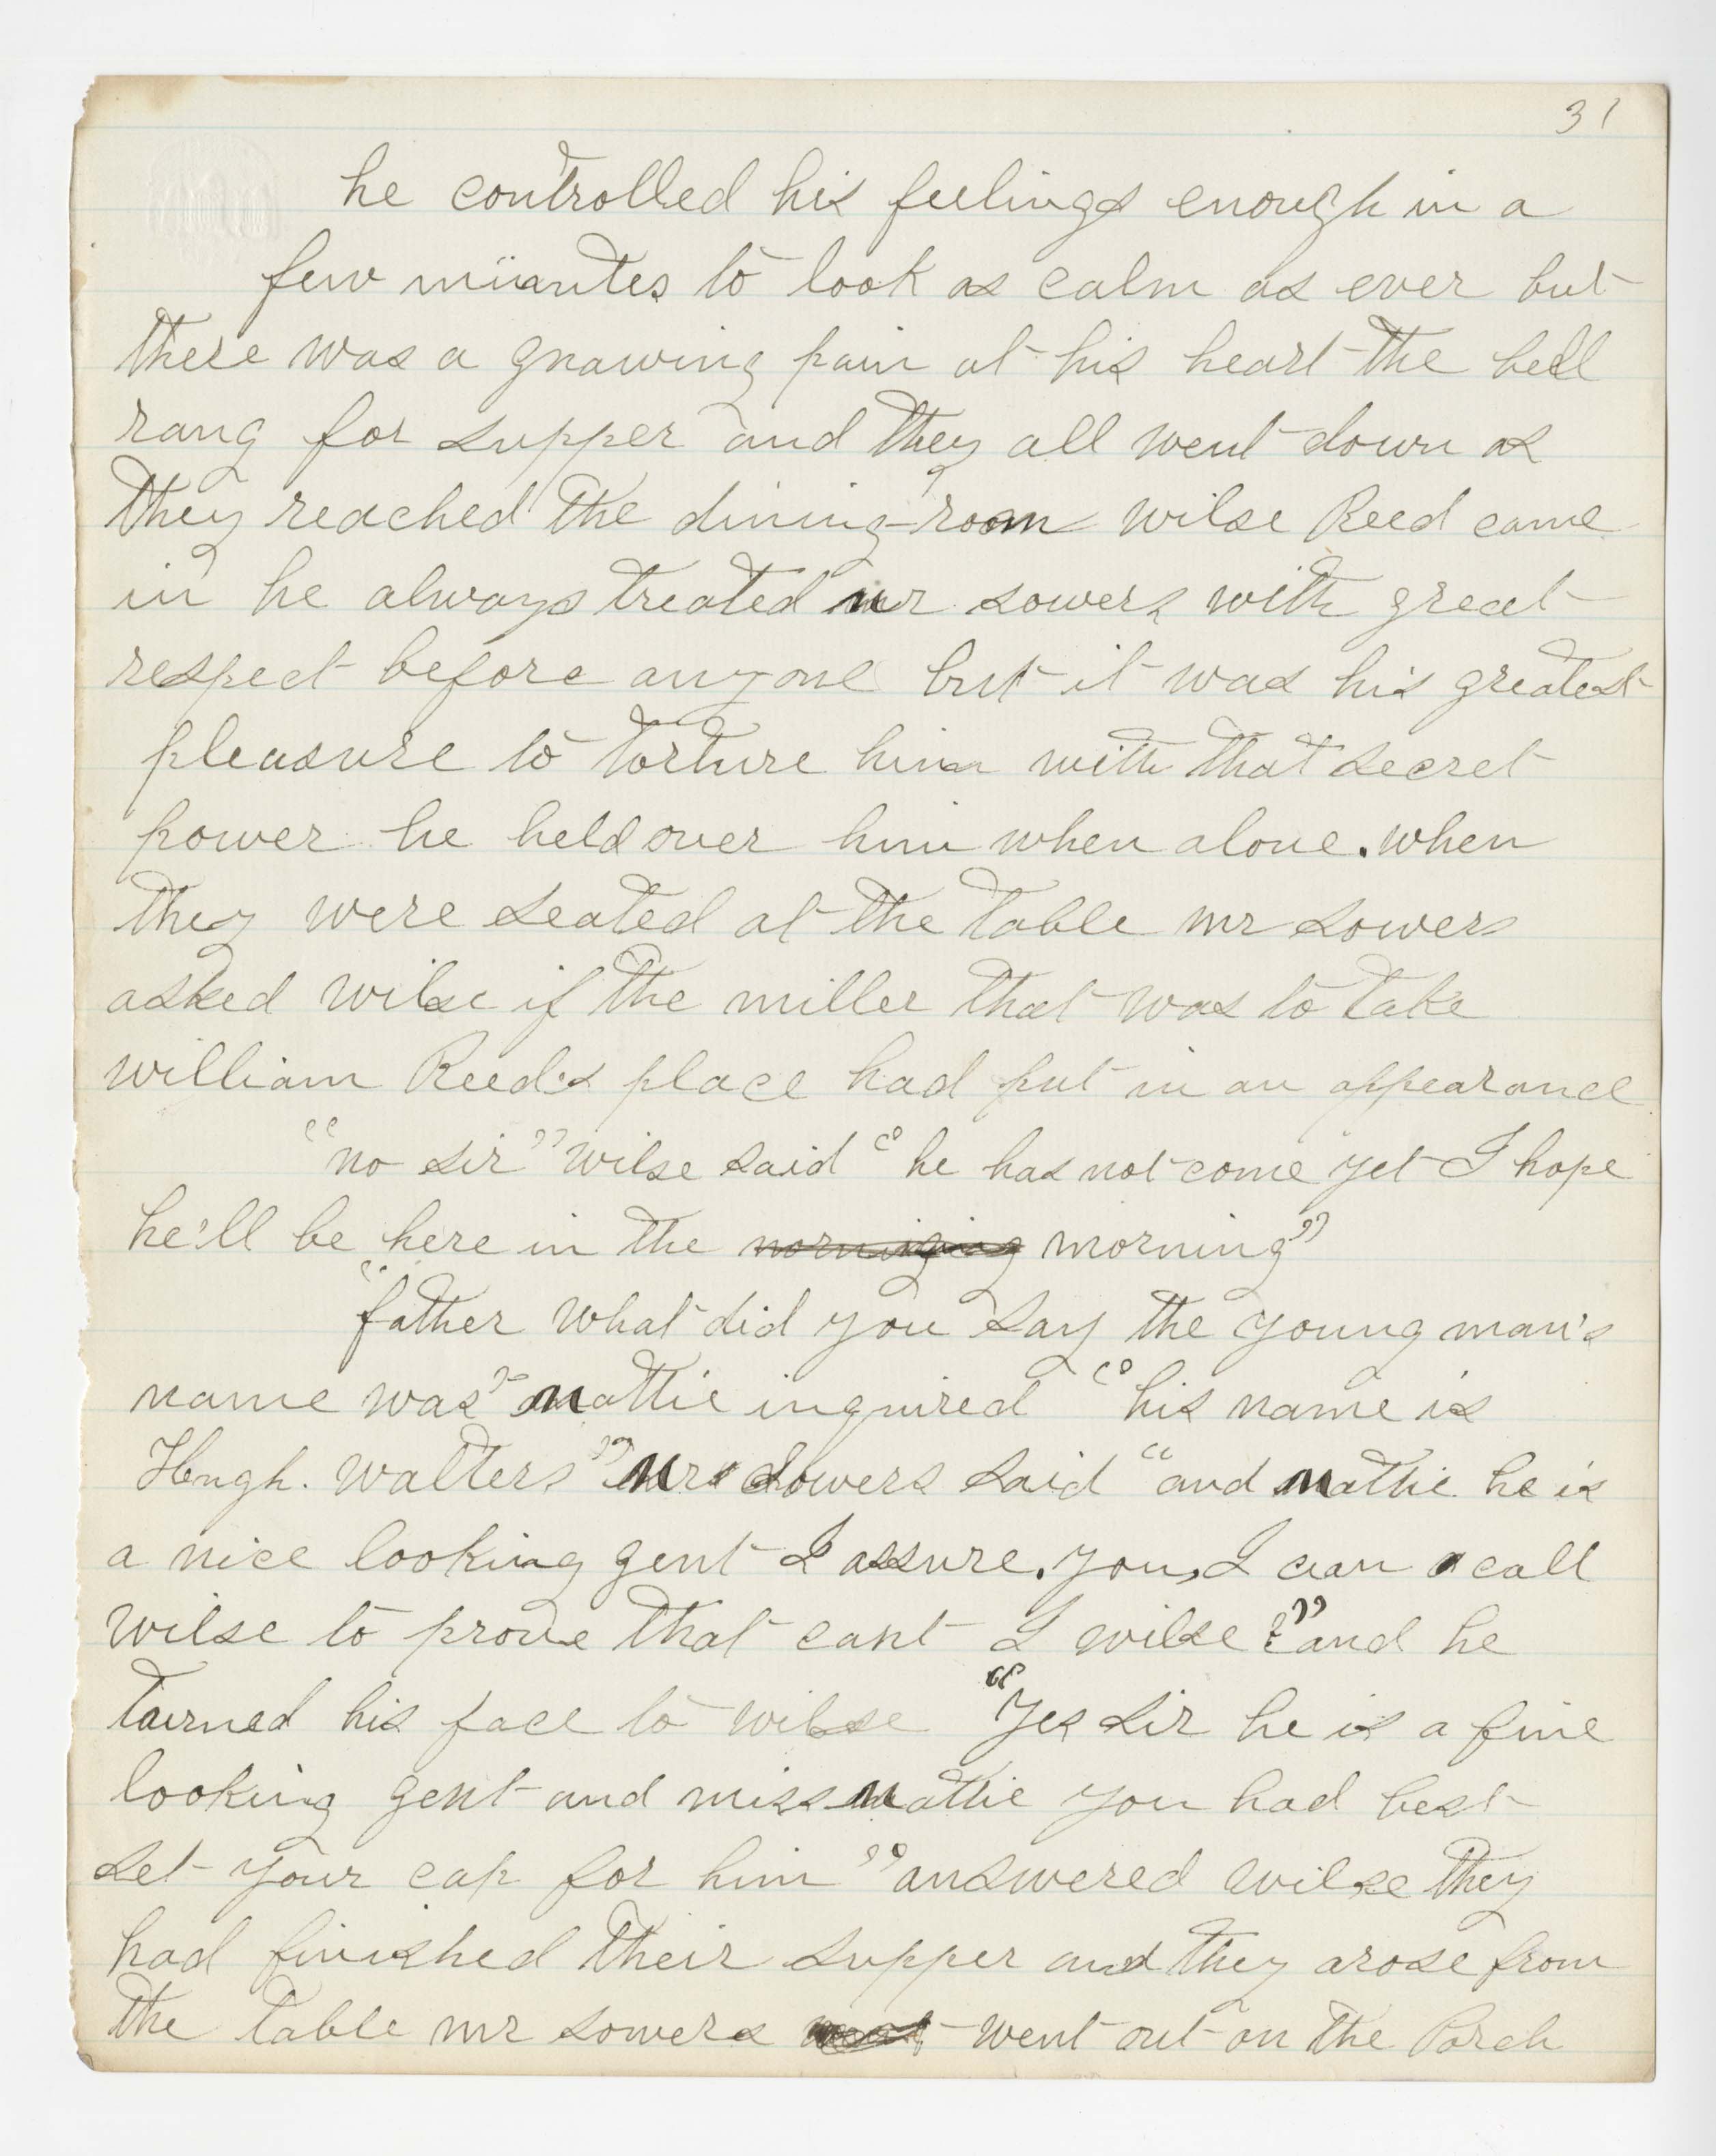 31
he controlled his feelings enough in a
few minutes to look as calm as ever but
there was a gnawing pain at his heart the bell
rang for supper and they all went down as
they reached the dining-room wilse Reed came
in he always treated mr sowers with great
respect before anyone but it was his greatest
pleasure to torture him with that secret
power he held over him when alone. when
they were seated at the table mr sowers
asked wilse if the miller that was to take
william Reed's place had put in an appearance
"no sir" wilse said "he has not come yet I hope
he'll be here in the morning"
"father what did you say the young man's
name was" mattie inquired "his name is
Hugh. walters" mr sowers said "and mattie he is
a nice looking gent I assure. you, I can call
wilse to prove that cant I wilse?" and he
turned his face to wilse "yes sir he is a fine
looking gent and miss mattie you had best
set your cap for him" answered wilse they
had finished their supper and they arose from
the table mr sowers went out on the Porch